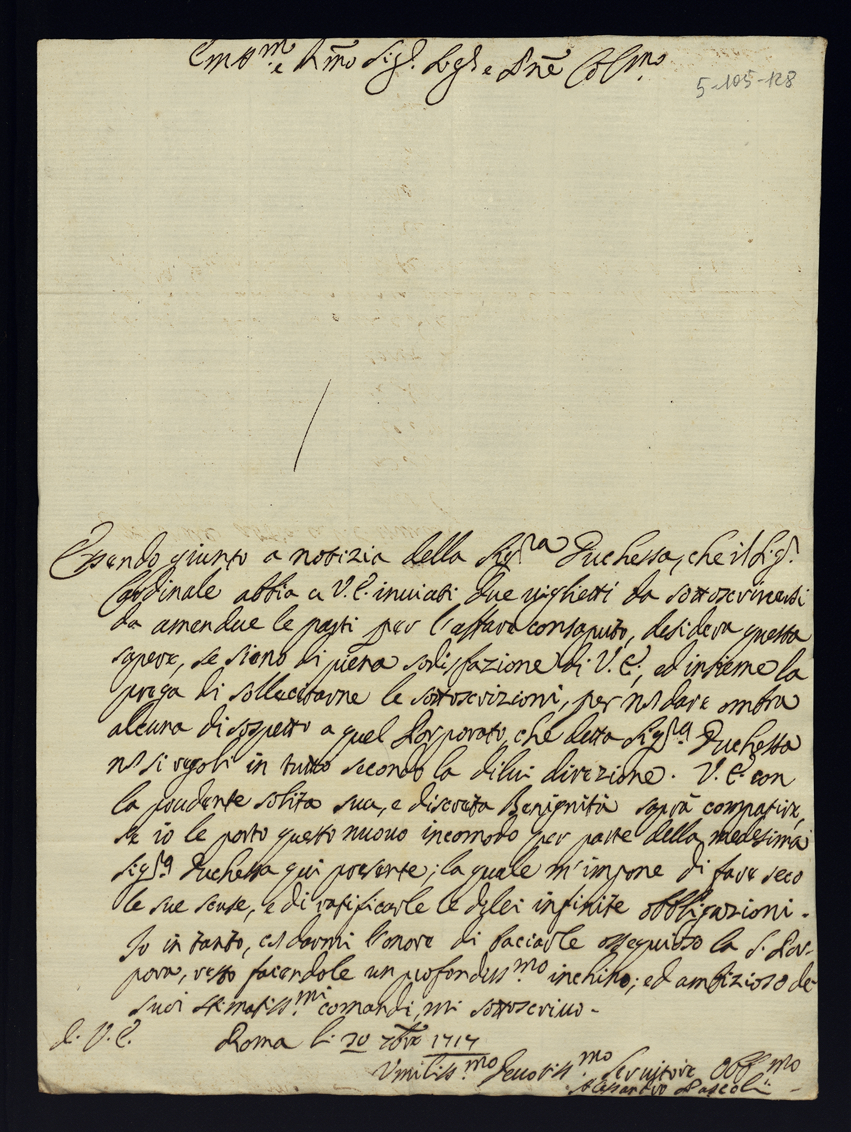 Em.mo e R.mo Sig.r Sig.r e P.ne Col.mo
5-105-128
Essendo giunto a notizia della Sig.ra Duchessa, che il Sig.r
Cardinale abbia a V.E. inviati due viglietti da sottoscriversi
da amendue le parti per l'affare consaputo, desidera questa
sapere, se sieno di piena sodisfazione di V.E., ed insieme la
prega di sollecitarne le sottoscrizioni, per no dare ombra
alcuna di sospetto a quel Porporato, che detta Sig.ra Duchessa
no si regoli in tutto secondo la dilui direzione. V.E. con
la prudente solita sua, e discreta Benignità saprà compatire,
se io le porto questo nuovo incomodo per parte della medesima
Sig.ra Duchessa qui presente; la quale m'impone di fare seco
le sue scuse, e di ratificarle le dilei infinite obbligazioni.
Io in tanto, col darmi l'onore di baciarle ossequioso la S. Por-
pora, resto facendole un profondiss.mo inchino; ed ambizioso de
suoi stimatiss.mi comandi, mi sottoscrivo.
di V.E. Roma li 20 7bre 1717
Umiliss.mo Devotiss.mo Servitore Obb.mo
Alessandro Pascoli